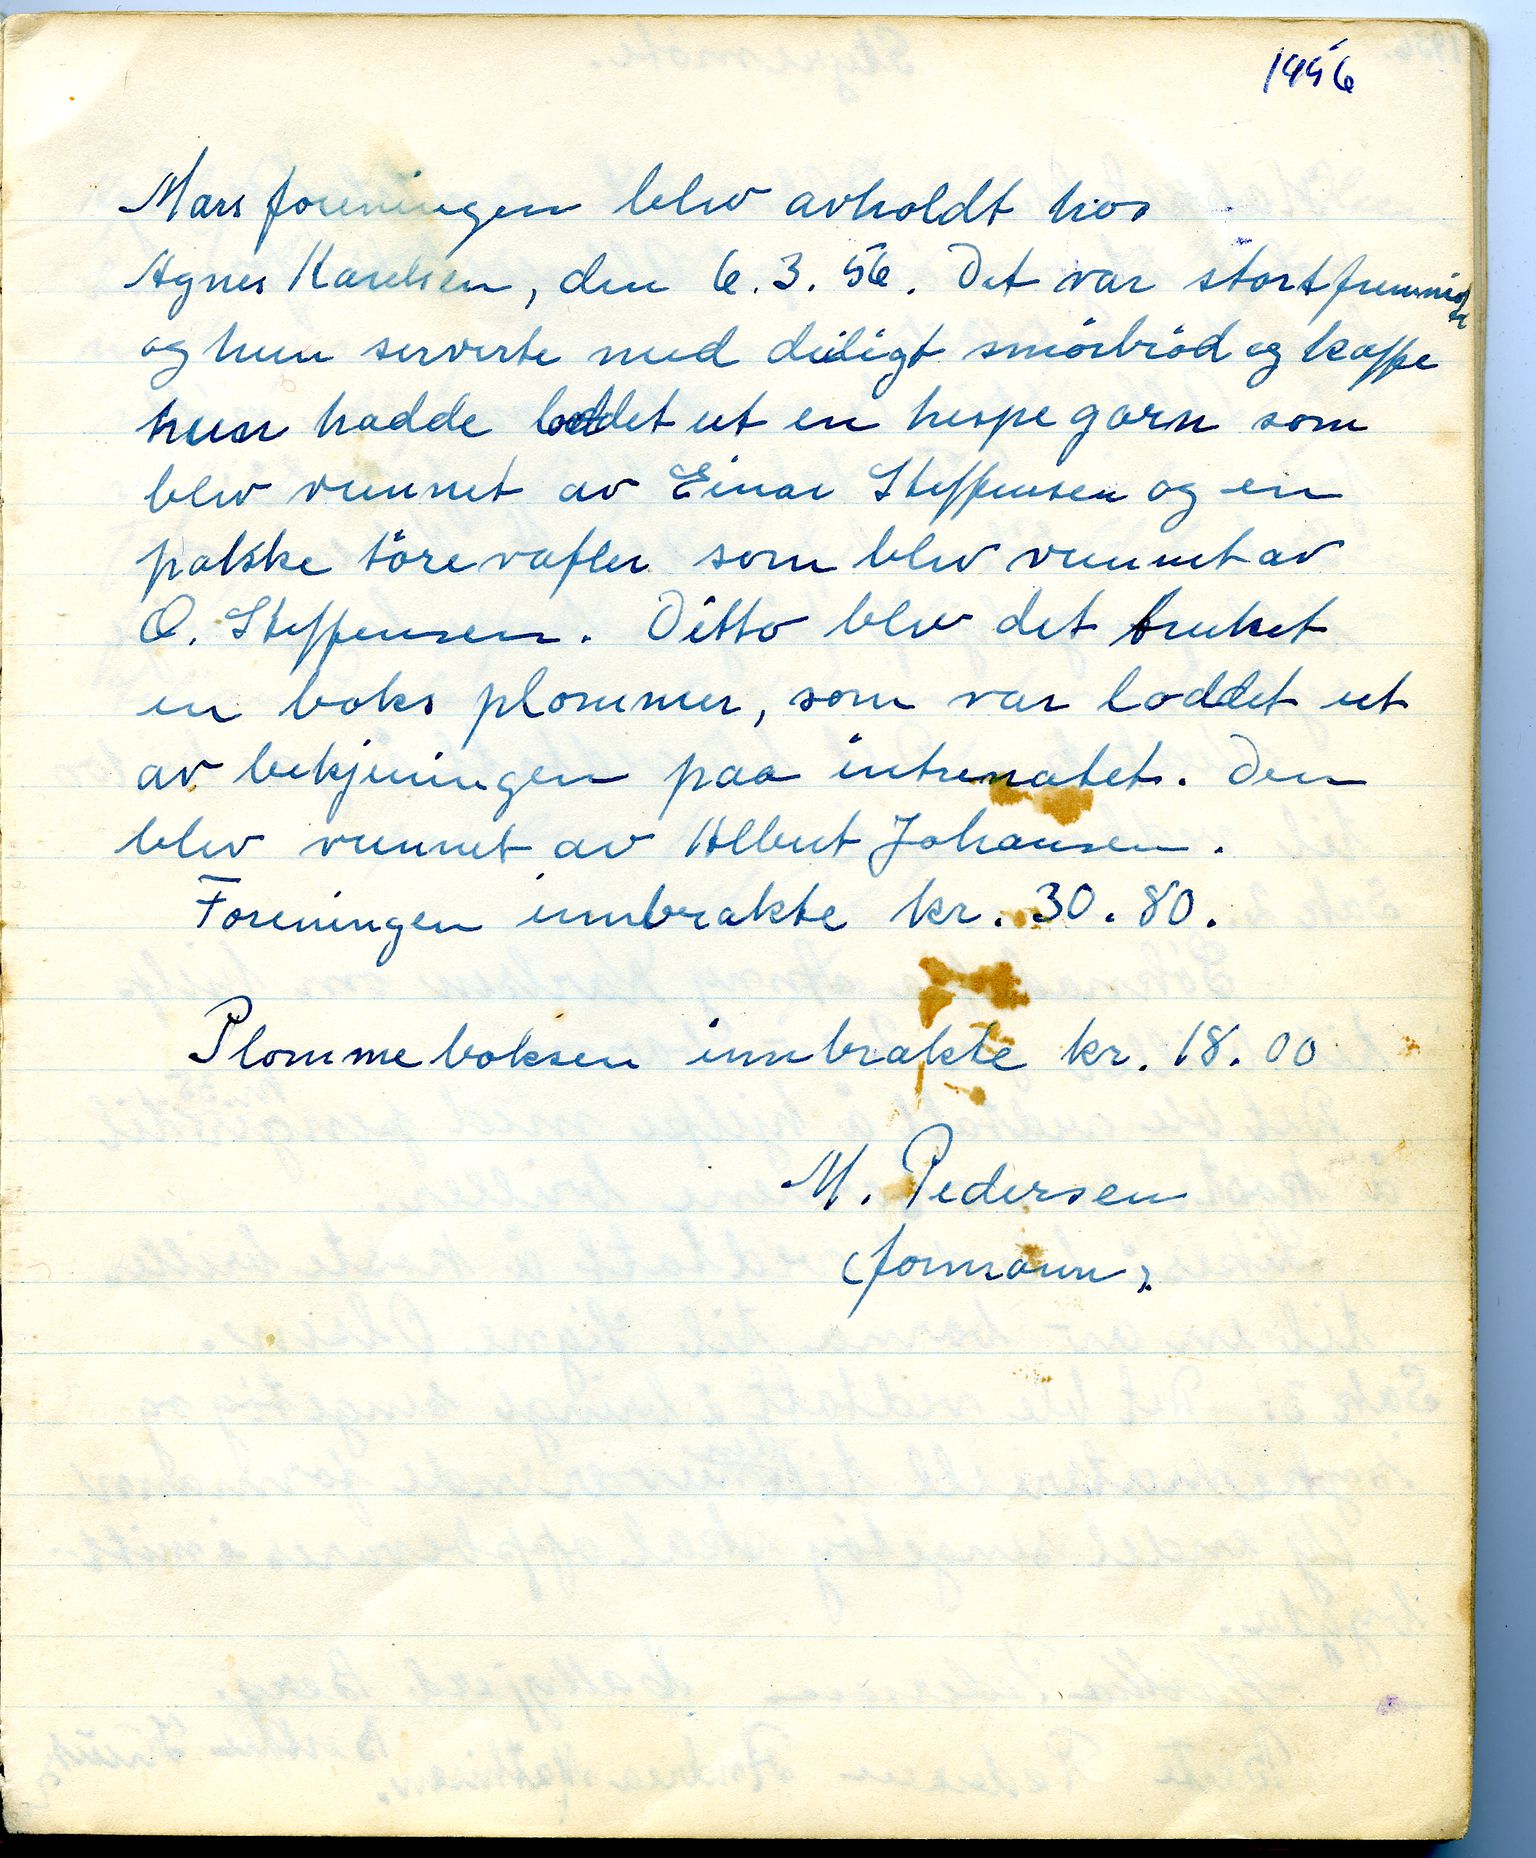 1956
Marsforeningen blev avholdt hos
Agnes Karelsen, den 6.3.56. Det var stort fremmøte
og hun serverte med deiligt smörbröd og kaffe
hun hadde loddet ut en hespe garn som
blev vunnet av Einar Steffensen og en
pakke törevafler som blev vunnet av
O. Steffensen. Ditto blev det trukket
en boks plommer, som var loddet ut
av bekjeningen paa internatet. Den
blev vunnet av Albert Johansen.
Foreningen innbrakte kr. 30.80.
Plommeboksen innbrakte kr. 18.00
M. Pedersen
(formann).